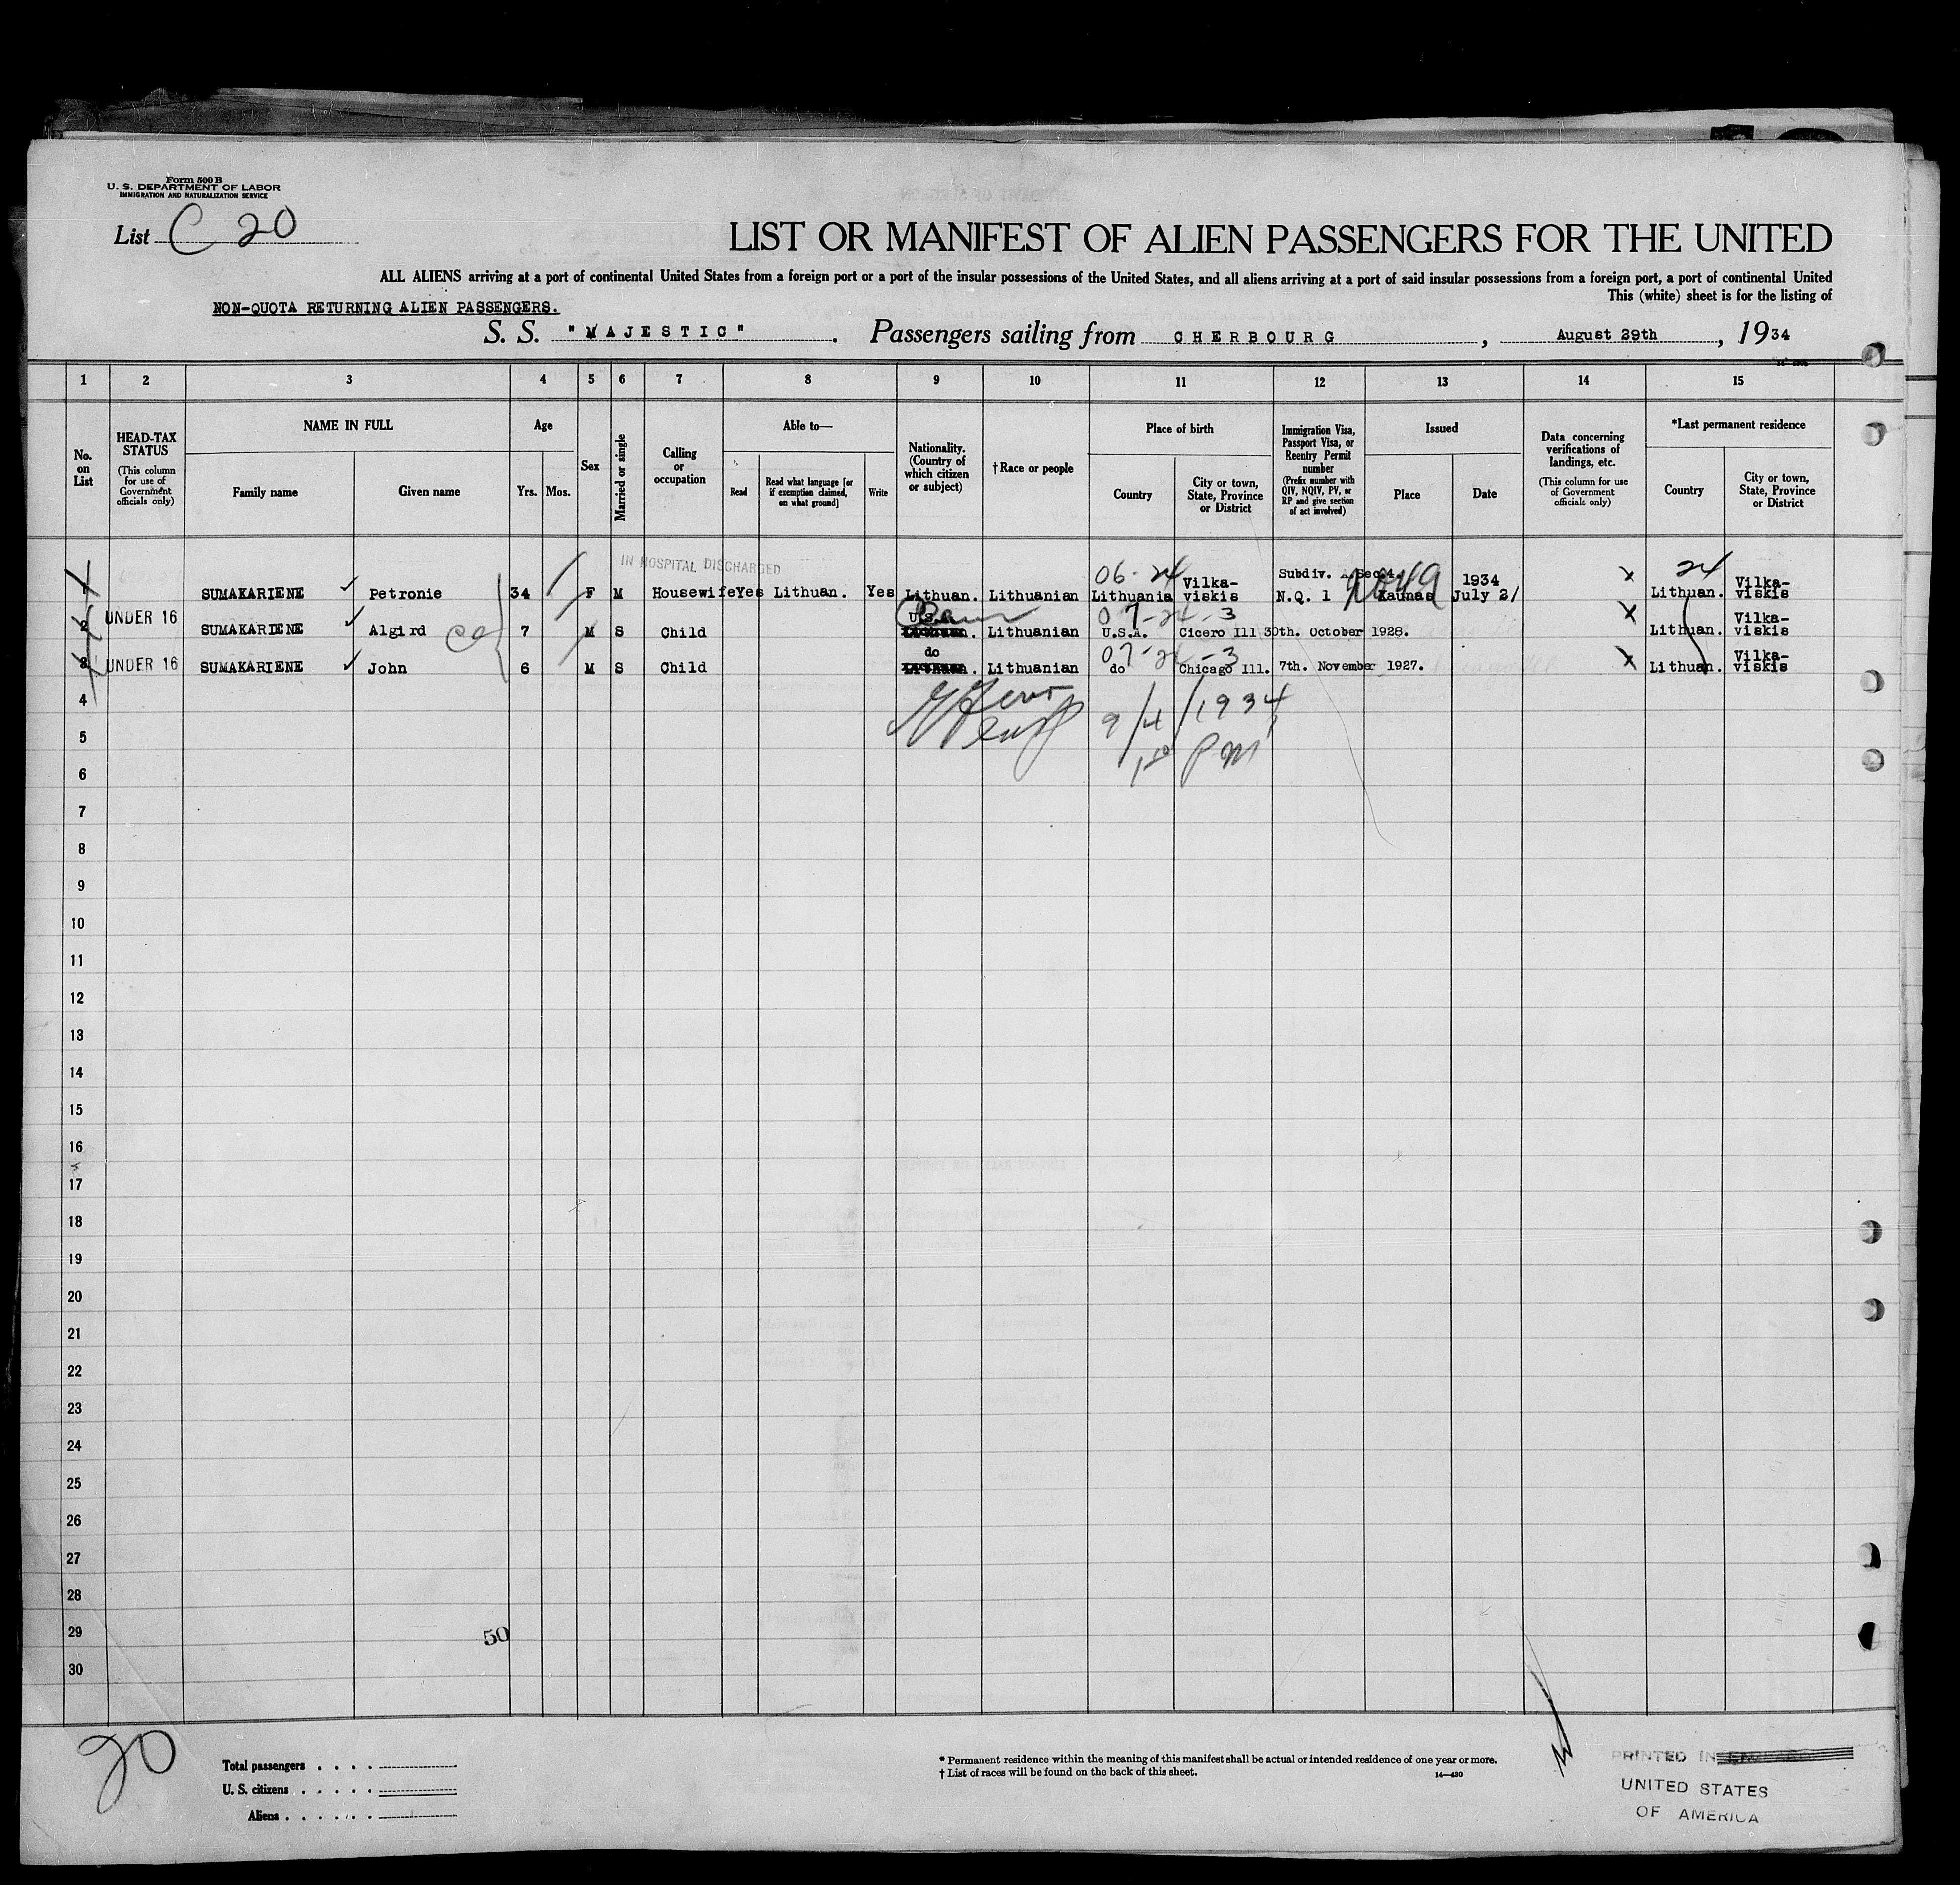 Form 500 B
U. S. DEPARTMENT OF LABOR
IMMIGRATION AND NATURALIZATION SERVICE
List C 20
LIST OR MANIFEST OF ALIEN PASSENGERS FOR THE UNITED
ALL ALIENS arriving at a port of continental United States from a foreign port or a port of the insular possessions of the United States, and all aliens arriving at a port of said insular possessions from a foreign port, a port of continental United
This (white) sheet is for the listing of
NON-QUOTA RETURNING ALIEN PASSENGERS.
S. S. "MAJESTIC". Passengers sailing from CHERBOURG, August 29th, 1934
1 2 3 4 5 6 7 8 9 10 11 12 13 14 15
No. on List
HEAD-TAX STATUS (This column for use of Government officials only)
NAME IN FULL
Family name
Given name
Age
Yrs. Mos.
Sex
Married or single
Calling or occupation
Able to—
Read
Read what language [or if exemption claimed, on what ground]
Write
Nationality. (Country of which citizen or subject)
†Race or people
Place of birth
Country
City or town, State, Province or District
Immigration Visa, Passport Visa, or Reentry Permit number (Prefix number with QIV, NQIV, PV, or RP and give section of act involved)
Issued
Place
Date
Data concerning verifications of landings, etc. (This column for use of Government officials only)
*Last permanent residence
Country
City or town, State, Province or District
IN HOSPITAL DISCHARGED
06-24
Subdiv. A Sec. 4.
24
1 SUMAKARIENE Petronie 34 F M Housewife Yes Lithuan. Yes Lithuan. Lithuanian Lithuania Vilka-viskis N.Q. 1 Kaunas 1934 July 2/ Lithuan. Vilka-viskis
07-24-3
2 UNDER 16 SUMAKARIENE Algird 7 M S Child U.S.A. Lithuan. Lithuanian U.S.A. Cicero Ill 30th. October 1928. Lithuan. Vilka-viskis
07-24-3
3 UNDER 16 SUMAKARIENE John 6 M S Child do Lithuan. Lithuanian do Chicago Ill. 7th. November 1927. Lithuan. Vilka-viskis
4
9/4/1934
5
PM
6
7
8
9
10
11
12
13
14
15
16
17
18
19
20
21
22
23
24
25
26
27
28
29
50
30
20
Total passengers . . . .
U. S. citizens . . . . .
Aliens . . . . . .
* Permanent residence within the meaning of this manifest shall be actual or intended residence of one year or more.
† List of races will be found on the back of this sheet.
14—430
PRINTED IN
UNITED STATES
OF AMERICA